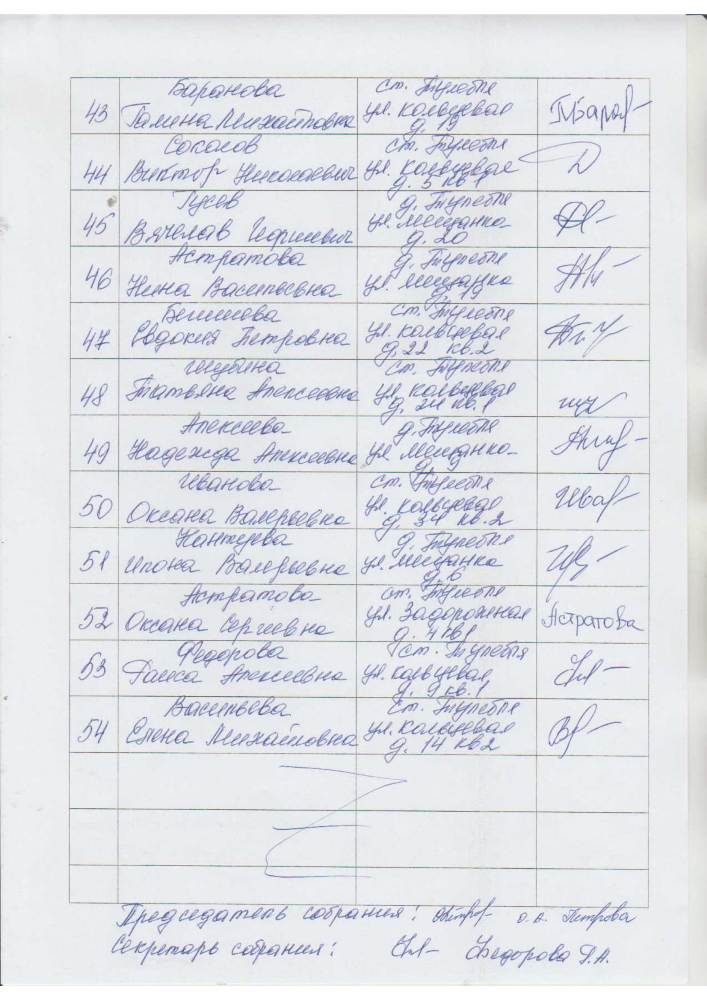 43 Баранова Галина Михайловна ст. Тулебля ул. Кольцевая д. 19
44 Соколов Виктор Николаевич ст. Тулебля ул. Кольцевая д. 5 кв 1
45 Гусев Вячеслав Георгиевич д. Тулебля ул. Мещанка д. 20
46 Астратова Нина Васильевна д. Тулебля ул. Мещанка
47 Евдокия Петровна ст. Тулебля ул. Кольцевая д. 22 кв. 2
48 Татьяна Алексеевна ст. Тулебля ул. Кольцевая кв. 1
49 Алексеева Надежда Алексеевна д. Тулебля ул. Мещанка
50 Иванова Оксана Валерьевна ст. Тулебля ул. Кольцевая д. 34 кв. 2
51 Валерьевна д. Тулебля ул. Мещанка д. 6
52 Астратова Оксана Сергеевна ст. Тулебля ул. Задорожная д. 4 кв 1 Астратова
53 Федорова Раиса Алексеевна ст. Тулебля ул. Кольцевая д. 9 кв. 1
54 Васильева Елена Михайловна ст. Тулебля ул. Кольцевая д. 14 кв 2
Председатель собрания: О.А. Петрова
Секретарь собрания: Федорова Р.А.